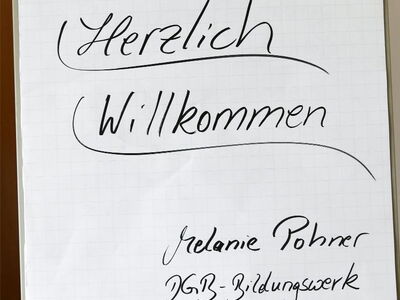 Herzlich
Willkommen
Melanie Pohner
DGB-Bildungswerk